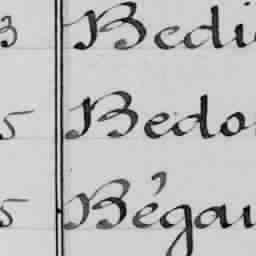 3 Bedi
5 Bedo
5 Bégau